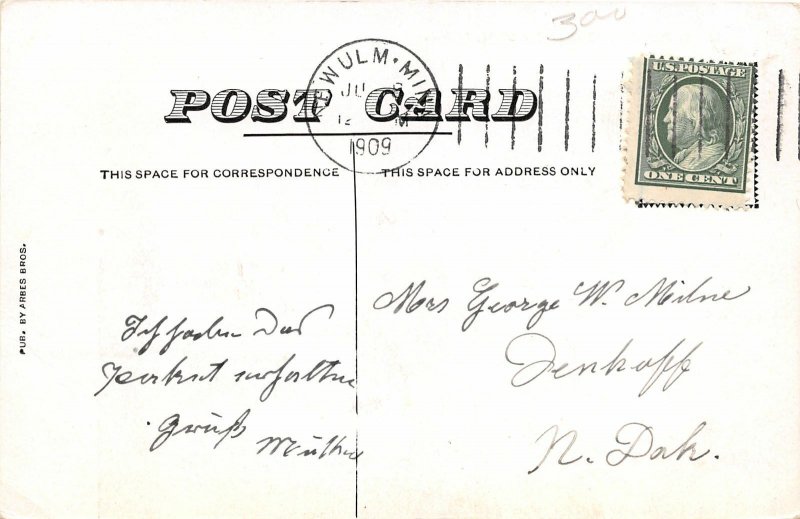 300
NEW ULM. MINN
JUL 8
12 M
1909
U.S. POSTAGE
ONE CENT
POST CARD
THIS SPACE FOR CORRESPONDENCE
THIS SPACE FOR ADDRESS ONLY
PUB. BY ARBES BROS.
Ich habe das
erhalten
Gruß
Mutter
Mrs George W. Milne
Denhoff
N. Dak.